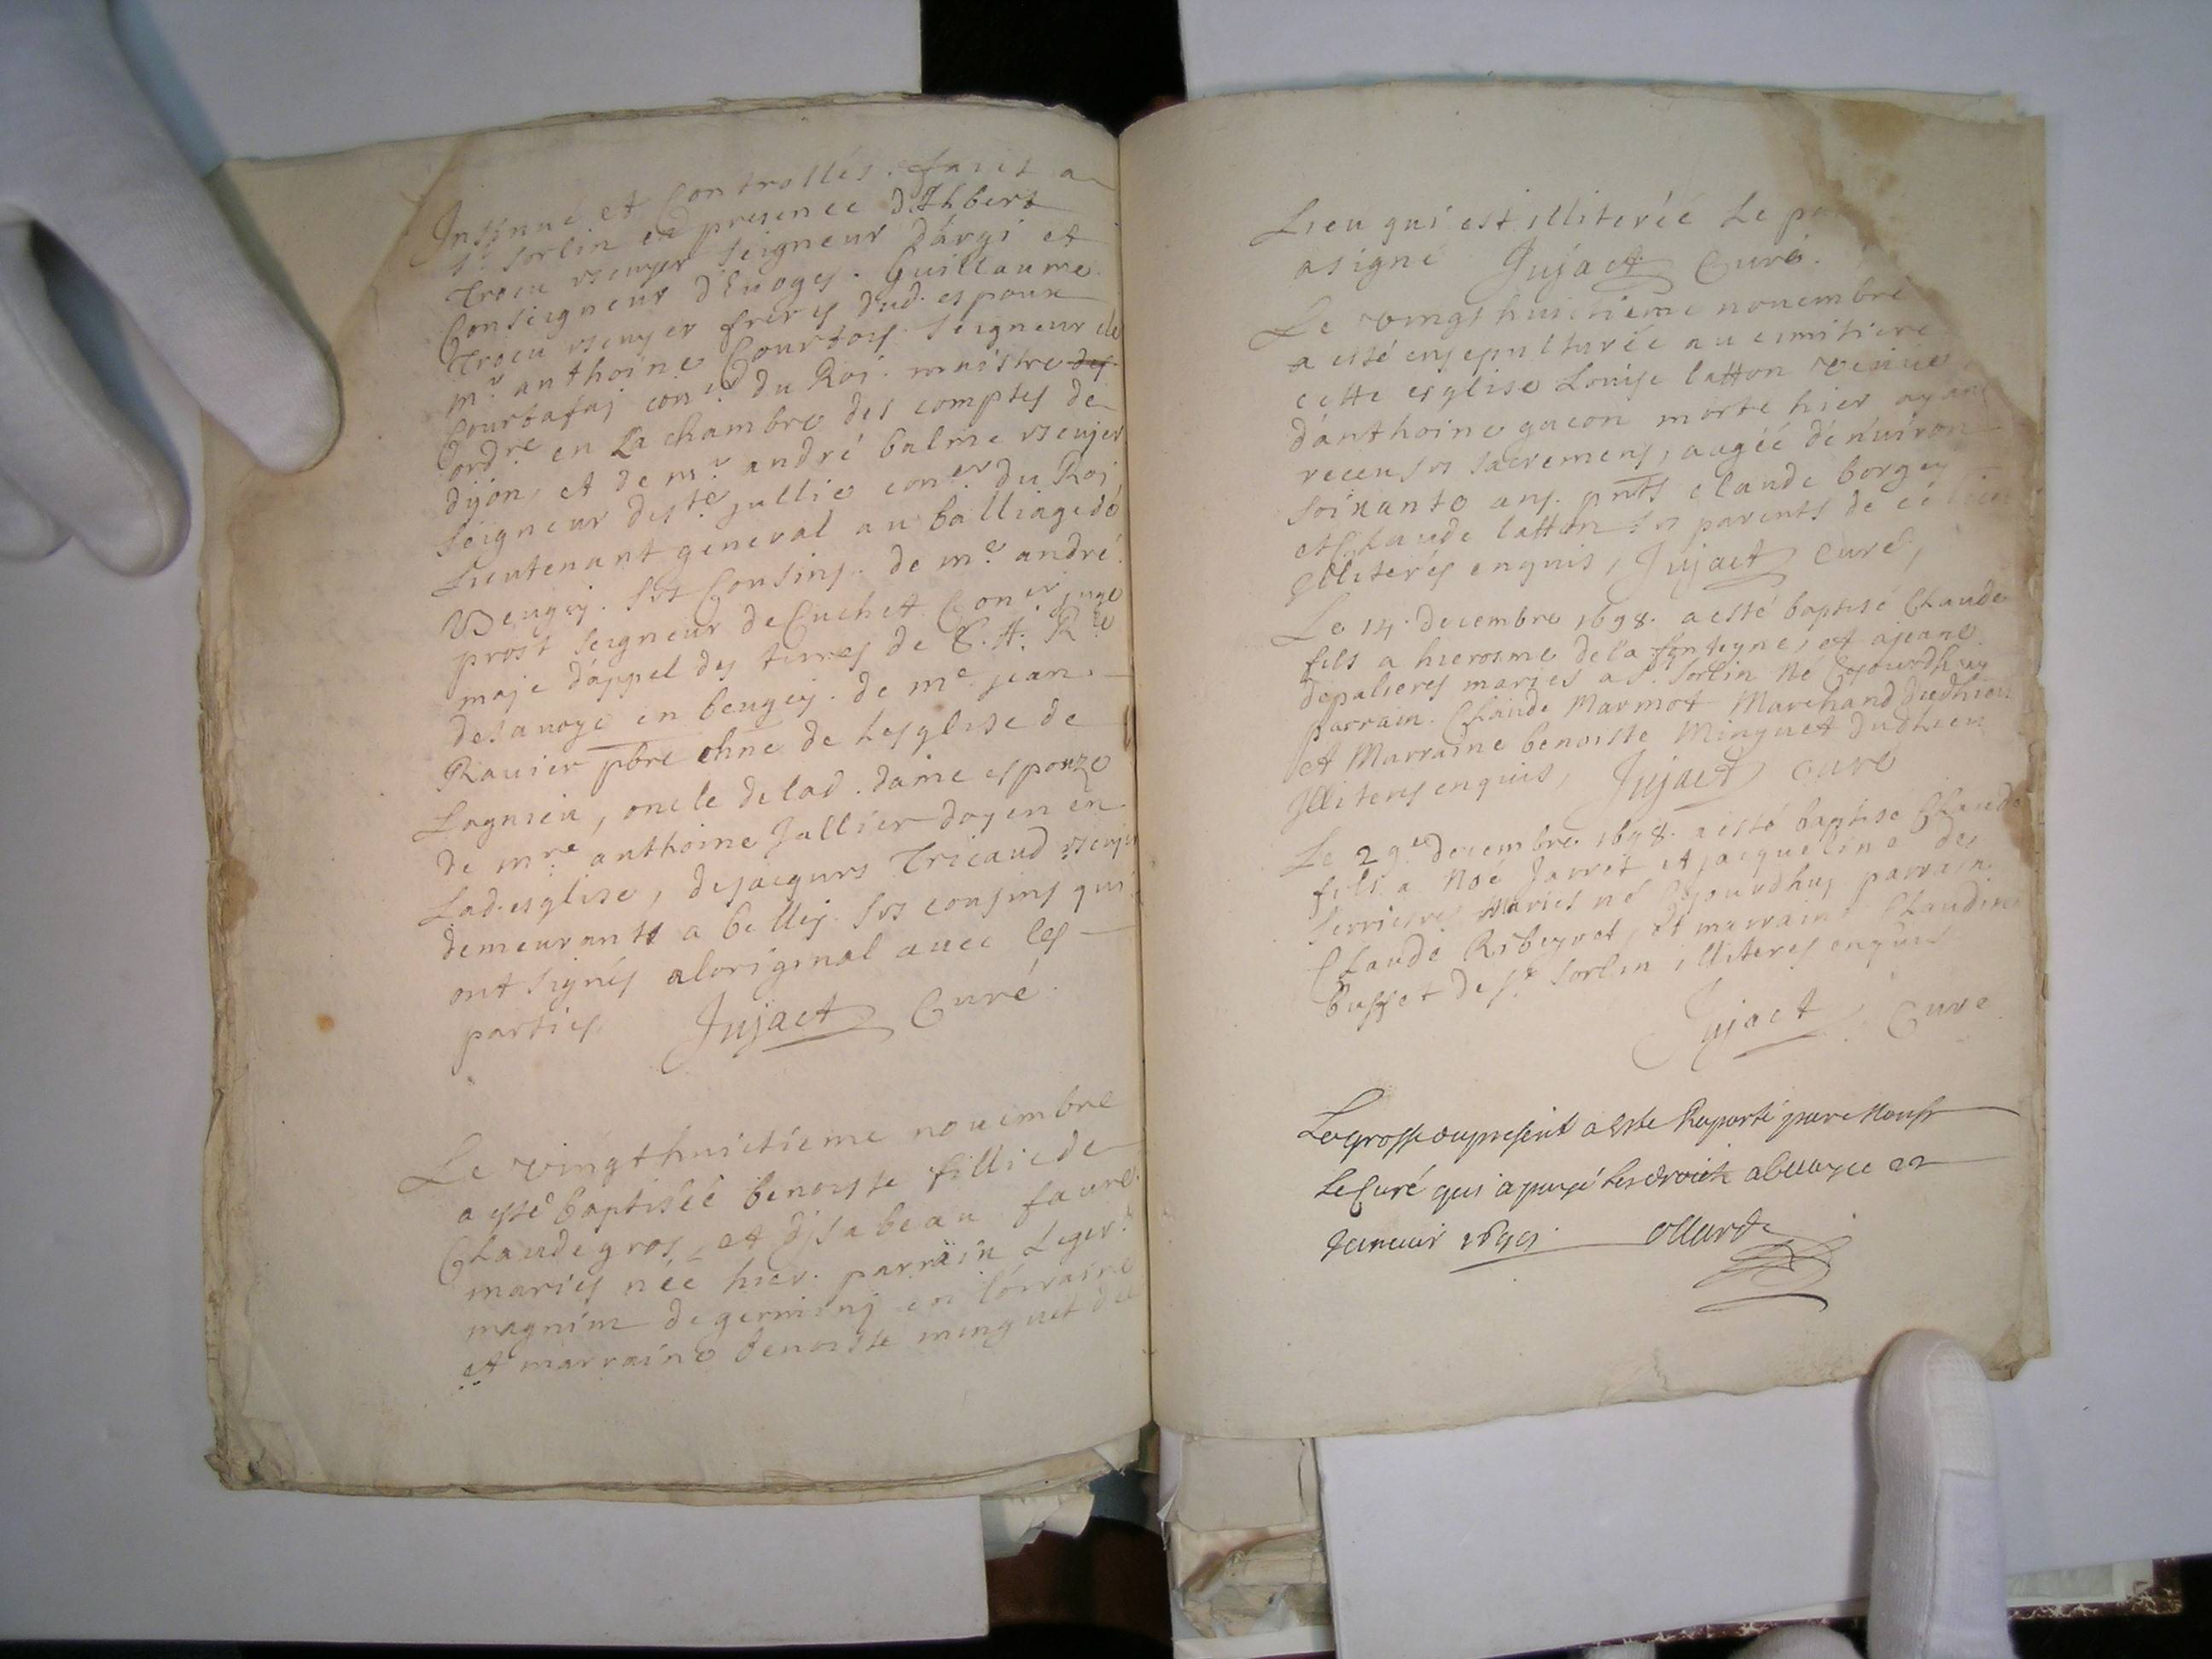 Insinué et Controllés. Faict a
St. Sorlin en presence d'Ihbert
Trocu escuyer seigneur d'argi et
Conseigneur d'Euoges. Guillaume
Trocu escuyer freres dud. espoux
Mr. anthoine Courtois seigneur de
Courtafaj coner. du Roi. maistre des
ordre en La chambre des comptes de
dijon, et de mr andré balme escujer
seigneur de ste jullie coner du Roi
Lieutenant general au balliage de
Beugej. ses Cousins. de me. andré
prost seigneur de Cuchet Coner juge
maje d'appel des terres de S. A. Rle
de sauoye en beugej. de me. jean
Rauier pbre chne de Lesglise de
Lagnieu, oncle de lad. dame espouze
de mre anthoine Jallier doyen en
Lad. esglise, de jacques Tricaud escujer
demeurants a bellej. ses cousins qui
ont signés a loriginal auec les
parties Jujact Curé.
Le vingt huictieme nouembre
a esté baptisée benoiste fillie de
Claude gros, et d'isabeau faure
mariés née hier. parrain Leger
magnin de germinj en lorraine
et marraine benoiste minguet du
Lieu qui est illiterée Le
a signé Jujact Curé.
Le vingt huictieme nouembre
a esté ensepulturée au cimitiere
cette esglise Louise latton veuue
d'anthoine gacon morte hier ayant
receu ses sacremens, aagée d'enuiron
soixante ans. pnts claude borgey
et Claude latton ses parents de ce lieu
Illiterés enquis, Jujact Curé,
Le 14. decembre 1698. a esté baptisé Claude
fils a hierosme de la fonteyne, et a jeane
depalieres mariés a St. Sorlin né Cejourdhuy
parrain. Claude Marmot Marchand dudlieu
et Marraine benoiste Minguet dudLieu
Illiterés enquis, Jujact curé
Le 29e decembre 1698. a esté baptisé Claude
fils a Noé Jarret et jacqueline des
serrieres Mariés né Cejourdhuy parrain
Claude Ribeyrot, et marraine Claudine
busset de St. Sorlin illiterés enquis
Jujact Curé
La grosse du present a este Raporté par Monsr
Le Curé qui a payé les droits a belley ce 22
Januier 1699 ollard